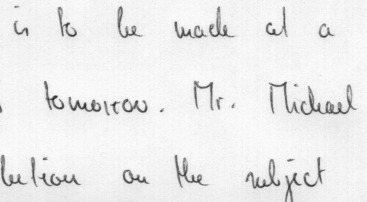 is to be made at a
tomorrow. Mr. Michael
on the subject